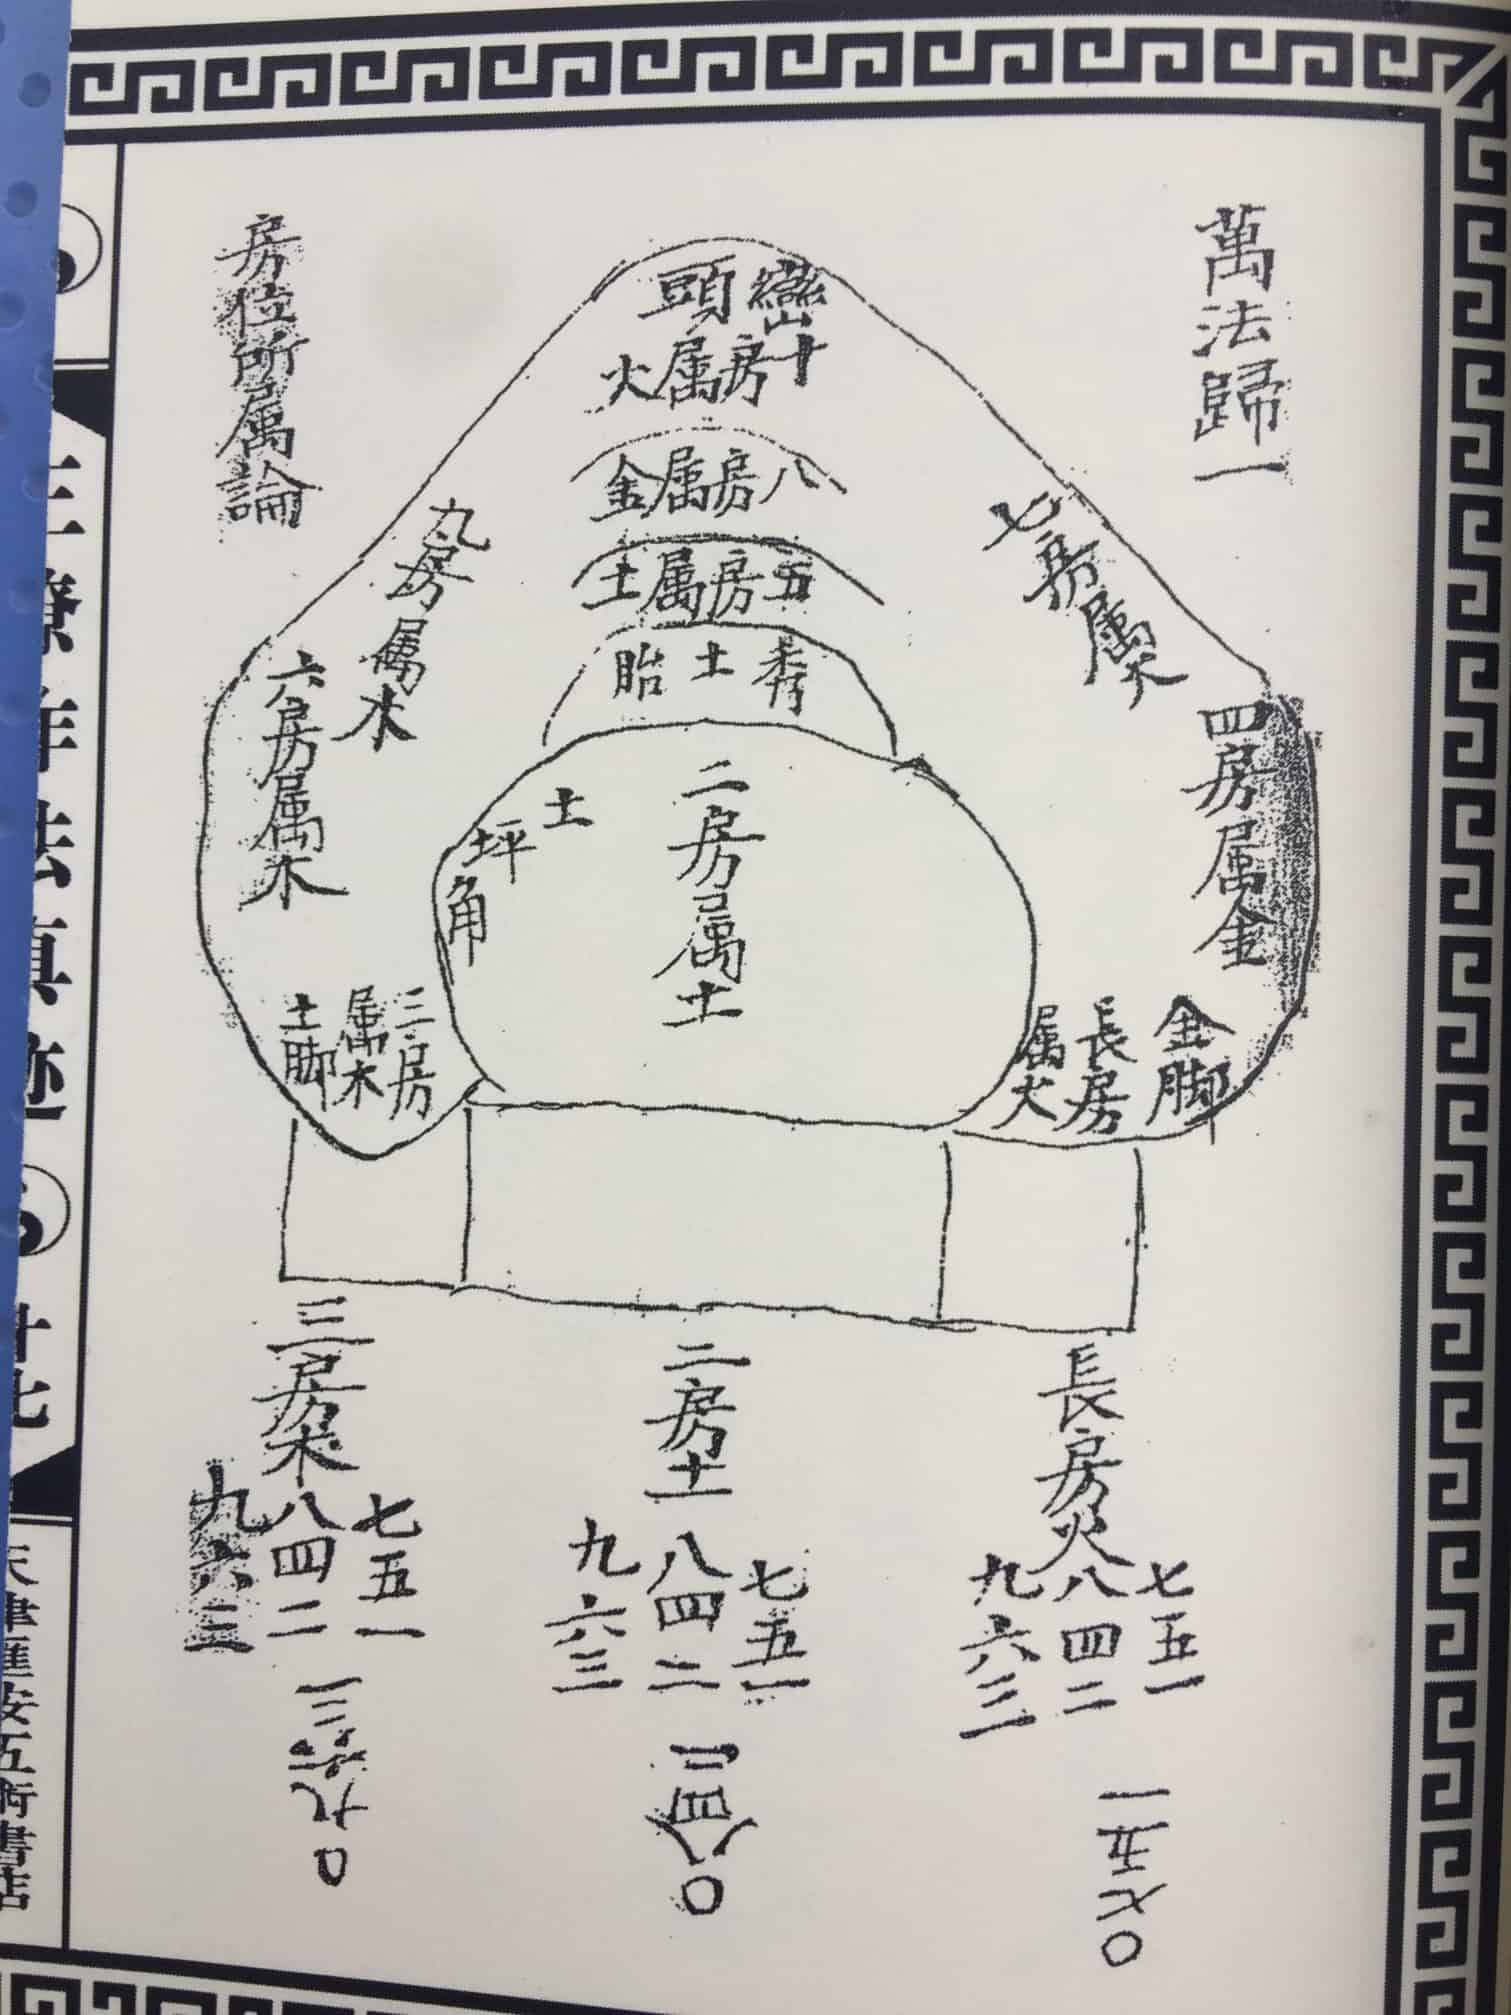 萬法歸一
房位所属論
巒頭
十房属火
八房属金
五房属土
秀土胎
七房属木
四房属金
金脚
長房属火
二房属土
土坪角
九房属水
六房属木
三房属木
土脚
長房火
七五一
八四二
九六三
一五七〇
二房土
七五一
八四二
九六三
二四八〇
三房木
七五一
八四二
九六三
三六九〇
三僚
法真迹
廿七
天津匯安五術書店